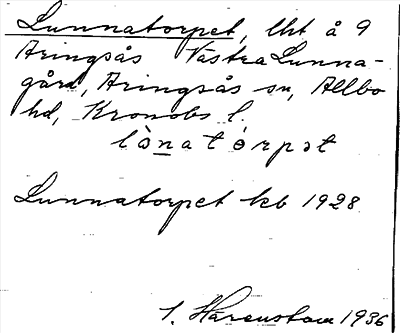 Lunnatorpet, lht å 9
Aringsås Västra Lunna-
gård, Aringsås sn, Allbo
hd, Kronobs l.
lònatórpət
Lunnatorpet kb 1928
S. Härenstam 1936